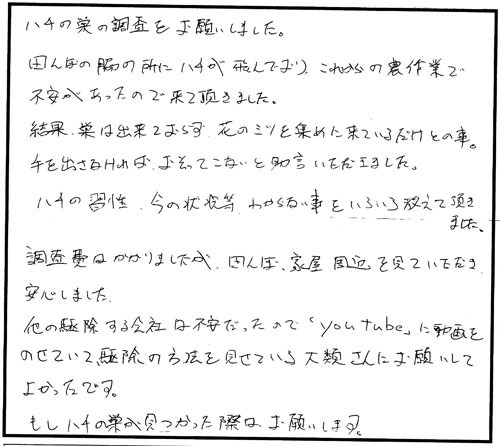 ハチの巣の調査をお願いしました。
田んぼの脇の所にハチが飛んでおり、これからの農作業で
不安があったので来て頂きました。
結果、巣は出来ておらず、花のミツを集めに来ているだけとの事。
手を出さなければ、おそってこないと助言いただきました。
ハチの習性、今の状況等、わからない事をいろいろ教えて頂き
ました。
調査費はかかりましたが、田んぼ、家屋周辺を見ていただき
安心しました。
他の駆除する会社は不安だったので「youtube」に動画を
のせていて、駆除の方法を見せている大類さんにお願いして
よかったです。
もしハチの巣が見つかった際はお願いします。